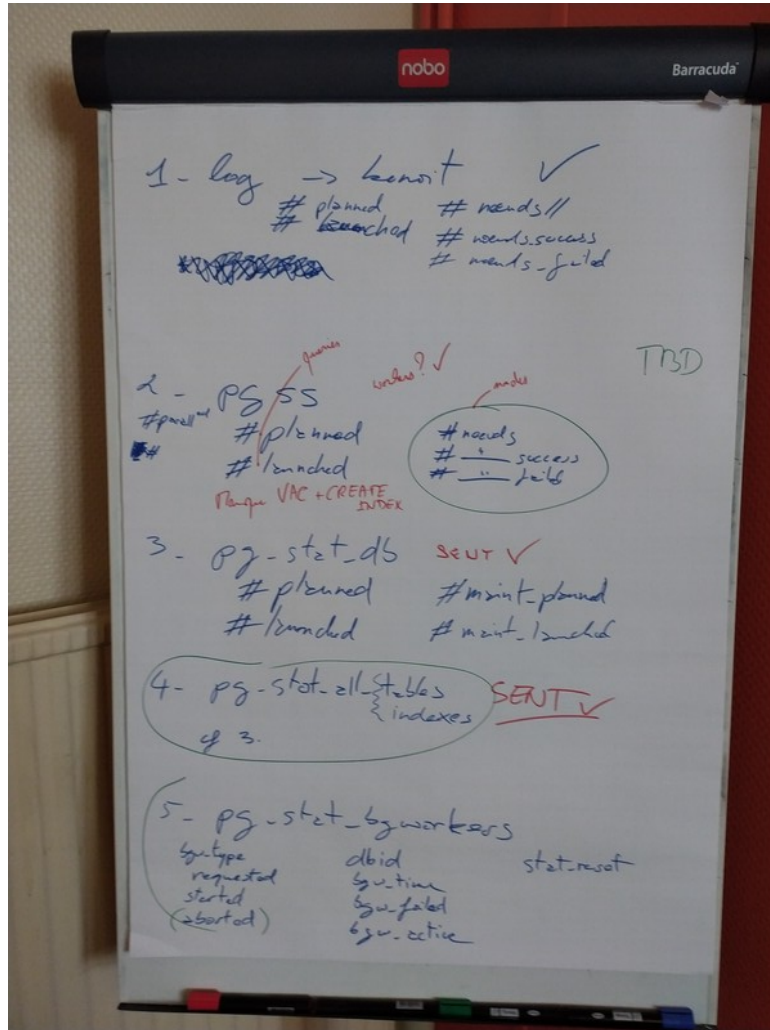 nobo
Barracuda
1- log -> benoit ✓
# planned
# launched
# nœuds//
# nœuds_success
# nœuds_failed
TBD
queries
workers? ✓
nodes
2 - pg ss
#parallel
#
# planned
# launched
Manque VAC + CREATE INDEX
# nœuds
# __"__ success
# __"__ failed
3 - pg_stat_db SENT ✓
# planned
# launched
# maint_planned
# maint_launched
4- pg_stat_all_{tables
{indexes
SENT ✓
cf 3.
5- pg_stat_bgworkers
bgw_type
requested
started
(aborted)
dbid
bgw_time
bgw_failed
bgw_active
stat_reset